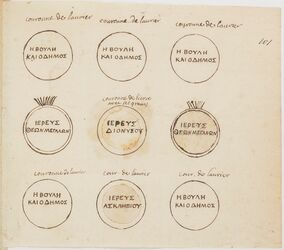 couronne de laurier
couronne de laurier
couronne de laurier
Η ΒΟΥΛΗ
ΚΑΙ Ο ΔΗΜΟΣ
Η ΒΟΥΛΗ
ΚΑΙ Ο ΔΗΜΟΣ
Η ΒΟΥΛΗ
ΚΑΙ Ο ΔΗΜΟΣ
couronne de lierre
avec
ΙΕΡΕΥΣ
ΘΕΩΝ ΜΕΓΑΛΩΝ
ΙΕΡΕΥΣ
ΔΙΟΝΥΣΟΥ
ΙΕΡΕΥΣ
ΘΕΩΝ ΜΕΓΑΛΩΝ
couronne de laurier
cour. de laurier
cour. de laurier
Η ΒΟΥΛΗ
ΚΑΙ Ο ΔΗΜΟΣ
ΙΕΡΕΥΣ
ΑΣΚΛΗΠΙΟΥ
Η ΒΟΥΛΗ
ΚΑΙ Ο ΔΗΜΟΣ